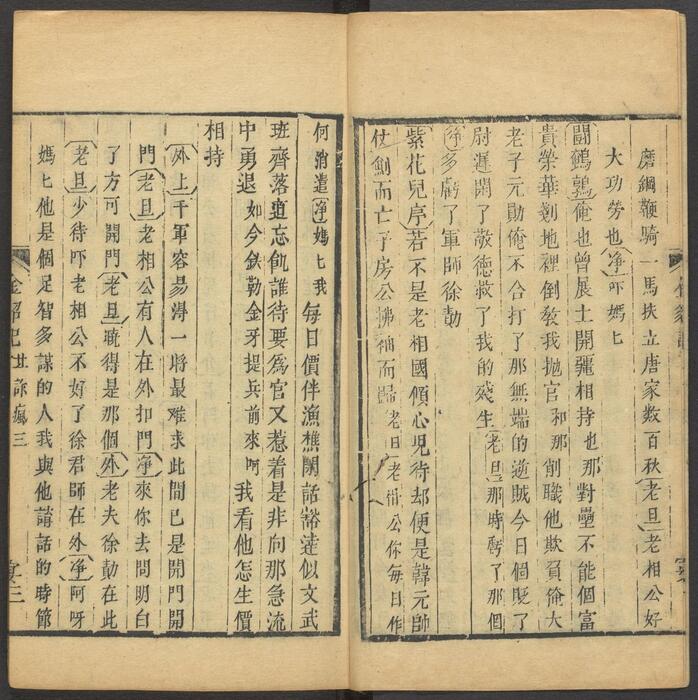 磨鋼鞭騎一馬扶立唐家数百秋老旦老相公好
大功勞也净吓媽匕
鬭鵪鶉俺也曾展土開疆相持也那對壘不能個富
貴榮華剗地裡倒教我抛官和那削職他欺負俺大
老子元勛俺不合打了那無端的逆賊今日個貶了
尉遲閑了敬德救了我的殘生老旦那時虧了那個
净多虧了軍師徐勣
紫花兒序若不是老相國傾心児待却便是韓元帥
仗劍而亡子房公拂袖而歸老旦老相公你每日作
何消遣净媽匕我每日價伴漁樵閑話豁達似文武
班齊落道忘飢誰待要爲官又惹着是非向那急流
中勇退如今鉄勒金牙提兵前來啊我看他怎生價
相持
外上千軍容易得一將最难求此間已是開門開
門老旦老相公有人在外扣門净來你去問明白
了方可開門老旦曉得是那個外老夫徐勣在此
老旦少待吓老相公不好了徐君師在外净阿呀
媽匕他是個足智多謀的人我與他講話的時節
金貂記 詐瘋 三